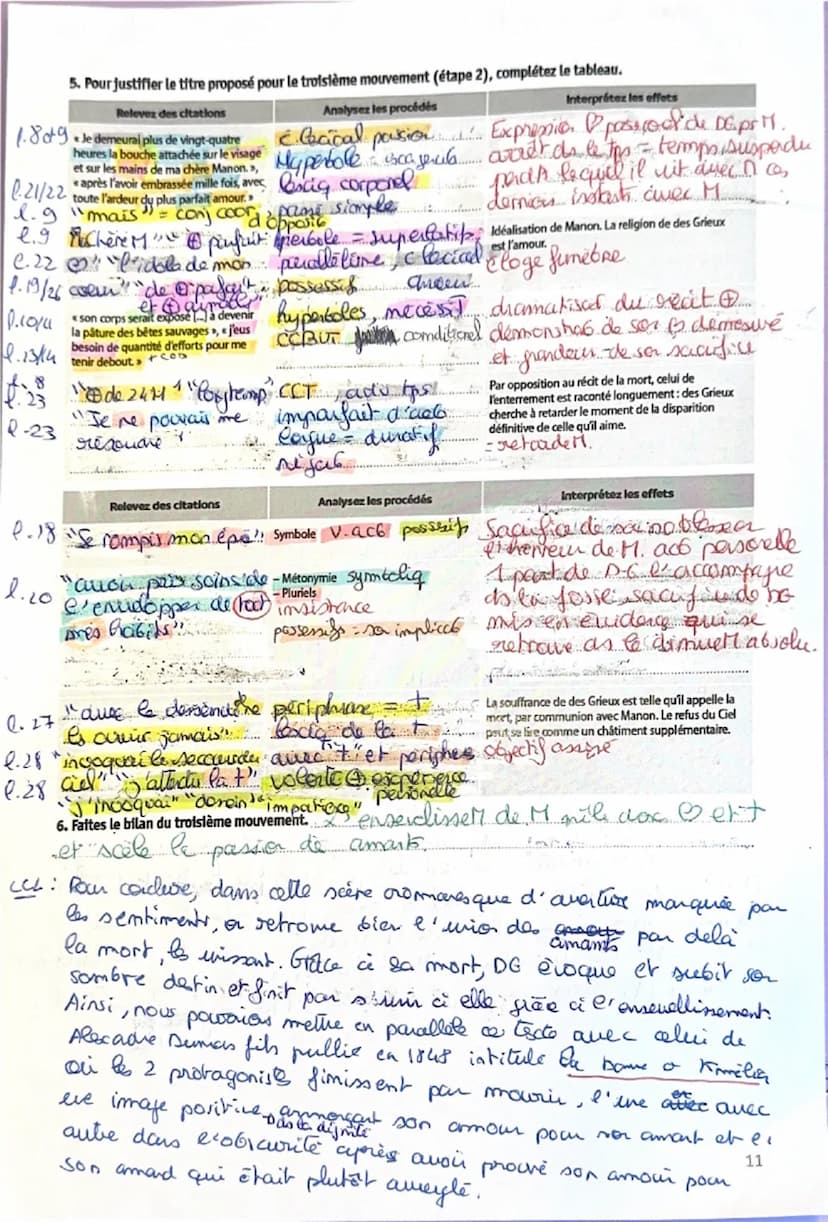 5. Pour justifier le titre proposé pour le troisième mouvement (étape 2), complétez le tableau.
Relevez des citations
Analysez les procédés
Interprétez les effets
l.8 et 9
« Je demeurai plus de vingt-quatre
heures la bouche attachée sur le visage
et sur les mains de ma chère Manon. »,
l.21/22
« après l'avoir embrassée mille fois, avec
toute l'ardeur du plus parfait amour. »
l.9
"mais" = conj coor d'opposit°
c. lexical passion
Hyperbole =
lexiq corporel
passé simple
Expression ♡ passion de DG pr M.
arrêt ds le tps = temps suspendu
pendt lequel il vit avec M ces
derniers instants avec M
l.9
"chère M"
l.22
"l'idole de mon
l.19/26
coeur" "de ⊕ parfait
et ⊕ aimable"
hyperbole = superlatif,
parallélisme, c lexical
possessif
Idéalisation de Manon. La religion de des Grieux
est l'amour.
éloge funèbre
l.10/11
« son corps serait exposé [...] à devenir
la pâture des bêtes sauvages », « j'eus
l.13/14
besoin de quantité d'efforts pour me
tenir debout. » + CCB
hyperboles,
CCBUT conditionel
dramatisat° du récit ⊕
démonstrat° de son ♡ démesuré
et grandeur de son sacrifice
l.8
l.23
"⊕ de 24H" "longtemps"
l.23
"Je ne pouvais me
résoudre"
CCT, adv tps
imparfait d'act°
longue = duratif
négat°
Par opposition au récit de la mort, celui de
l'enterrement est raconté longuement : des Grieux
cherche à retarder le moment de la disparition
définitive de celle qu'il aime.
= retarde M.
Relevez des citations
Analysez les procédés
Interprétez les effets
l.18
"Se rompis mon épé"
Symbole V. act° possessifs
Sacrifice de sa noblesse en
l'honneur de M. act° personelle
l.20
"avoir pris soins de
l'envelopper de tout
mes habits"
– Métonymie symboliq
– Pluriels
insistence
possessifs = son implicat°
1 part de DG l'accompagne
ds la fosse, sacrifice de DG
mis en évidence qui se
retrouve ds le dénuemt absolu.
l.27
"avec le dessein de ne
les ouvrir jamais"
l.28
"invoquai le secours du
l.28
ciel" "j'attendis la †"
"j'invoquai" "dessein" "impatience"
periphrase = †
lexiq de la †
avec "†" et periphes
volonté ⊕ expérience
personelle
La souffrance de des Grieux est telle qu'il appelle la
mort, par communion avec Manon. Le refus du Ciel
peut se lire comme un châtiment supplémentaire.
objectif assiré
6. Faites le bilan du troisième mouvement. L'ensevelissemt de M mêle donc ♡ et †
et scèle la passion de amants.
CCL : Pour conclure, dans cette scène romanesque d'aventure marquée par
les sentiments, on retrouve bien l'union des amants par delà
la mort, les unissant. Grâce à sa mort, DG évoque et subit son
sombre destin et finit par s'unir à elle grâce à l'ensevellissement.
Ainsi, nous pouvons mettre en parallèle ce texte avec celui de
Alexandre Dumas fils publié en 1848 intitulé La Dame o Kmélias
où les 2 protagonists finissent par mourir, l'une avec
une image positive, annonçant son amour pour son amant et l'
dans la dignité
autre dans l'obscurité après avoir prouvé son amour pour
son amand qui était plutôt aveuglé.
11